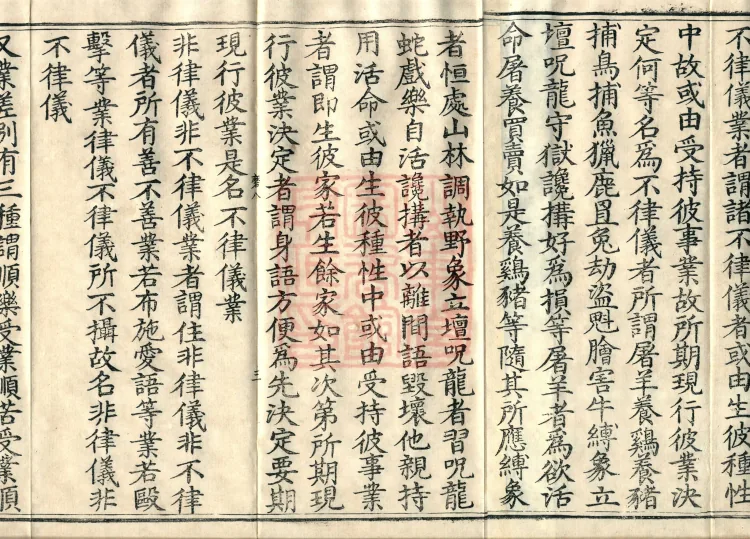 不律儀業者謂諸不律儀者或由生彼種性
中故或由受持彼事業故所期現行彼業決
定何等名爲不律儀者所謂屠羊養鷄養豬
捕鳥捕魚獵鹿罝兔劫盜魁膾害牛縛象立
壇呪龍守獄讒搆好爲損等屠羊者爲欲活
命屠養買賣如是養鷄豬等隨其所應縛象
者恒處山林調執野象立壇呪龍者習呪龍
蛇戲樂自活讒搆者以離間語毀壞他親持
用活命或由生彼種性中或由受持彼事業
者謂即生彼家若生餘家如其次第所期現
行彼業決定者謂身語方便爲先決定要期
三
現行彼業是名不律儀業
非律儀非不律儀業者謂住非律儀非不律
儀者所有善不善業若布施愛語等業若毆
擊等業律儀不律儀所不攝故名非律儀非
不律儀
又業差別有三種謂順樂受業順苦受業順